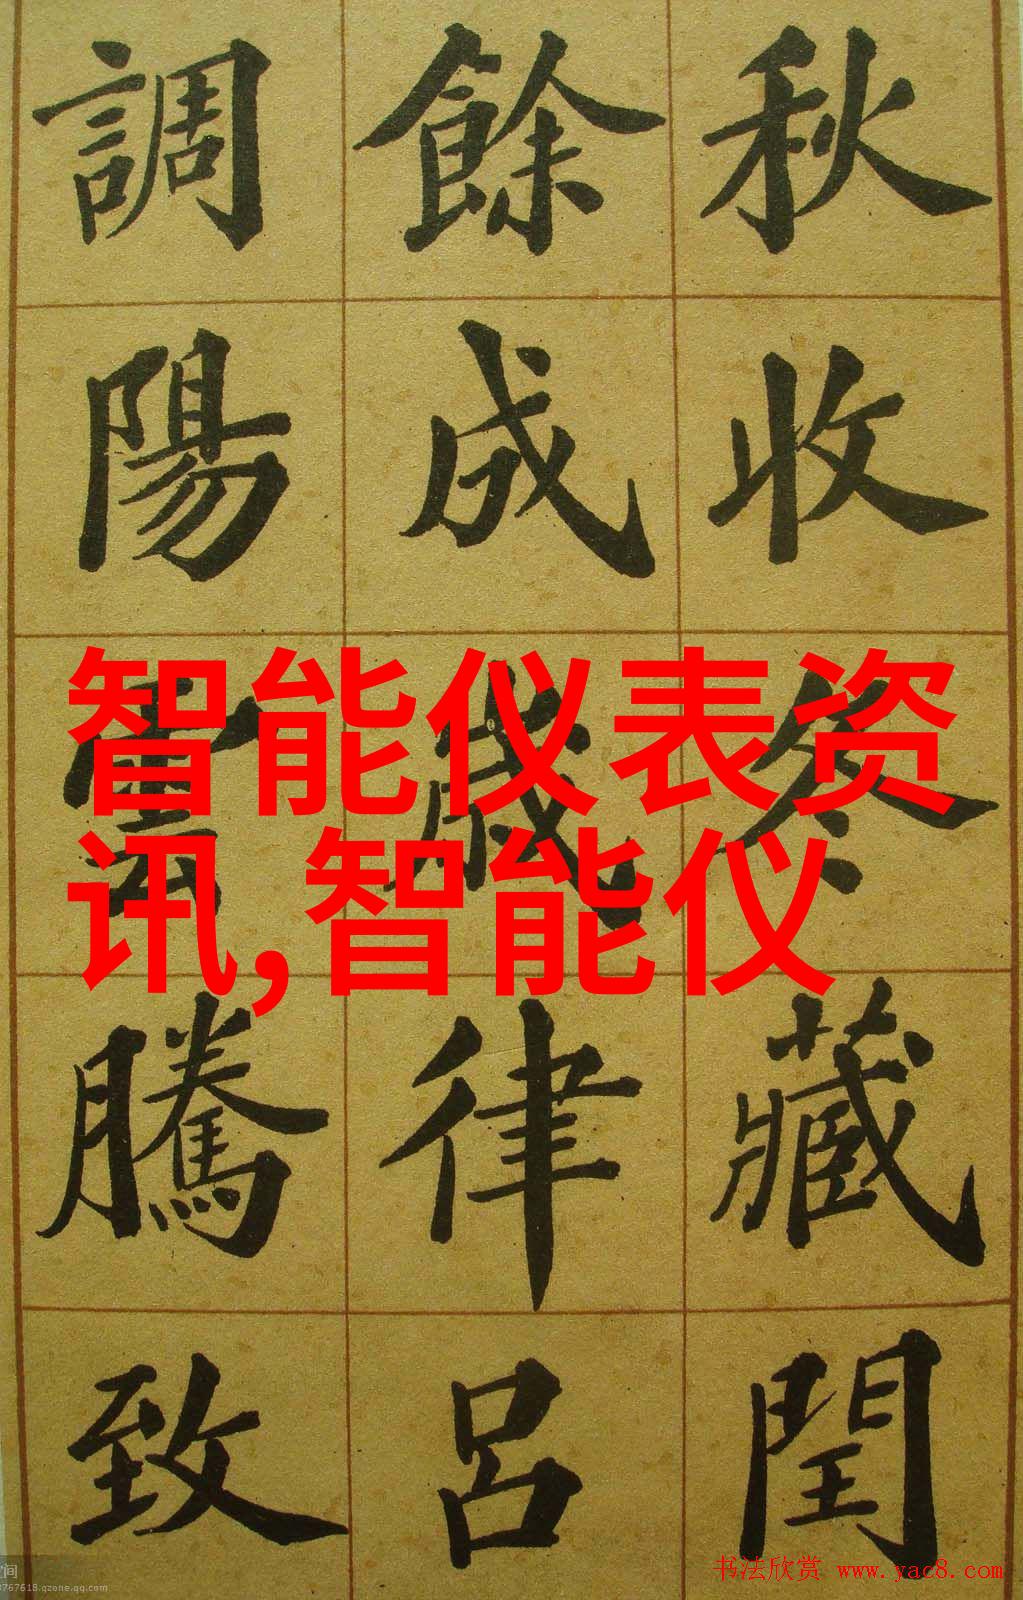 秋收冬藏閏
餘成歲律呂
調陽雲騰致
智能仪表资
讯,智能仪
书法欣赏 www.yac8.com
空间
3767618.qzone.qq.com